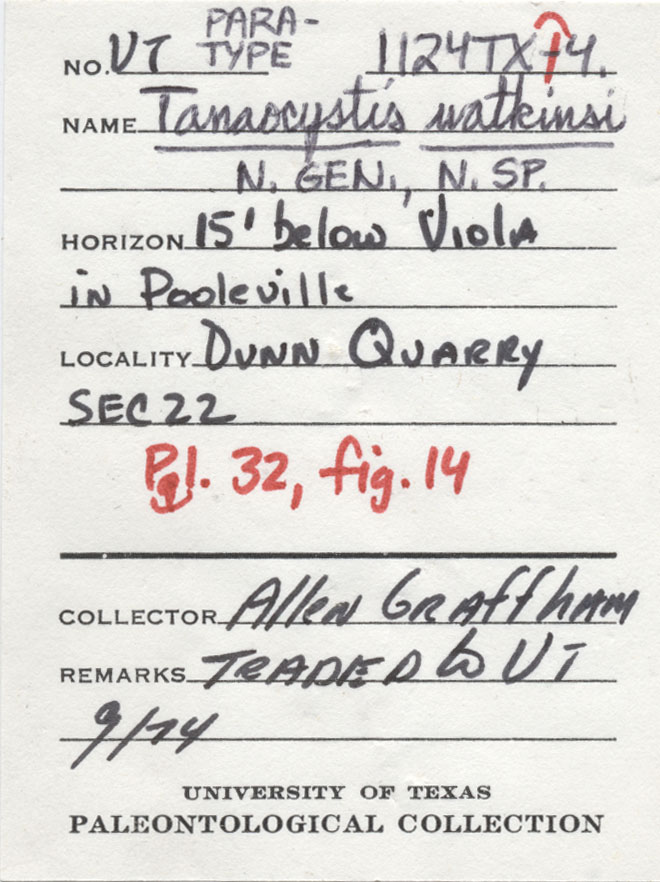 NO. UT PARA-TYPE 1124TX-14.
NAME Tanaocystis watkinsi
N. GEN., N. SP.
HORIZON 15' below Viola
in Pooleville
LOCALITY DUNN QUARRY
SEC 22
Pl. 32, fig. 14
COLLECTOR Allen GRAffhAM
REMARKS TRADED to UT
9/74
UNIVERSITY OF TEXAS
PALEONTOLOGICAL COLLECTION